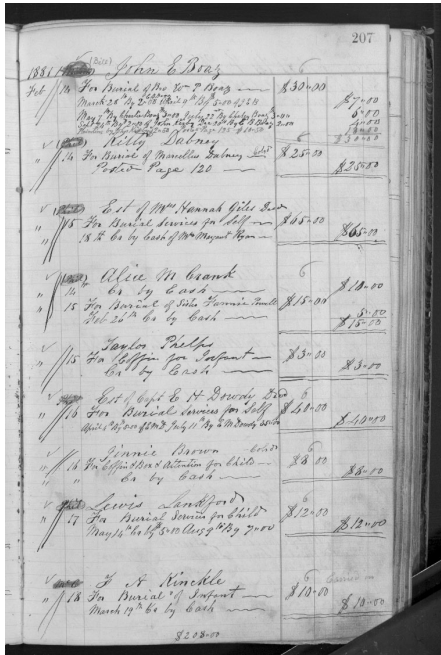 207
(Bill)
1881 John E Boaz 6
Feb 14 For Burial of Bro Wm P Boaz $30-00
March 28th By $7-00
May By Charles Boaz 3-00 July 27 By Charles Boaz 3-00
4-00
$30-00
Kitty Dabney 6
" 14 For Burial of Marcellus Dabney Cold $25-00
Posted Page 120 $25-00
Est of Mrs Hannah Giles Decd
" 15 For Burial Services for Self $65-00
18th Cr by Cash of Mrs Margaret Ryan $65-00
Alice M Crank 6
" 14 Cr by Cash $10-00
" 15 For Burial of Sister Fannie $15-00
Feb 26th Cr by Cash 5-00
$15-00
Taylor Phelps
" 15 For Coffin for Infant $3-00
Cr by Cash $3-00
Est of Capt E H Dowdy Decd 6
" 16 For Burial Services for Self $40-00
$40-00
Jinnie Brown Cold 6
" 16 For Coffin & Box & Attention for Child $8-00
" Cr by Cash $8-00
Lewis Lankford 6
" 17 For Burial Services for Child $12-00
May 14th Cr By 5-00 Aug 9th By 7-00 $12-00
F A Kinckle 6
" 18 For Burial of Infant $10-00
March 19th Cr by Cash $10-00
$208-00